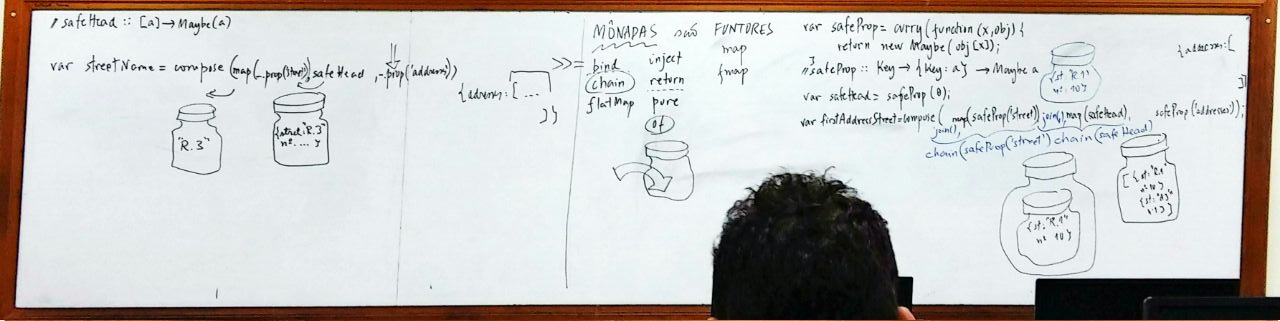 // safeHead :: [a] → Maybe(a)
var streetName = compose(map(_.prop('street')), safeHead, _.prop('addresses'))
{addresses: [ ...
]}
"R. 3"
{street: "R.3"
nº. ... }
MÔNADAS são FUNTORES
>>=
bind
chain
flatMap
inject
return
pure
of
map
fmap
var safeProp = curry(function (x, obj) {
return new Maybe(obj[x]);
});
// safeProp :: Key → {Key: a} → Maybe a
var safeHead = safeProp(0);
var firstAddressStreet = compose( join(), map(safeProp('street')), join(), map(safeHead), safeProp('addresses'));
chain(safeProp('street') chain(safeHead)
{st: "R.1"
nº. 10}
{addresses: [
]}
{st: "R.1"
nº 10}
[{st: "R.1"
nº 10}